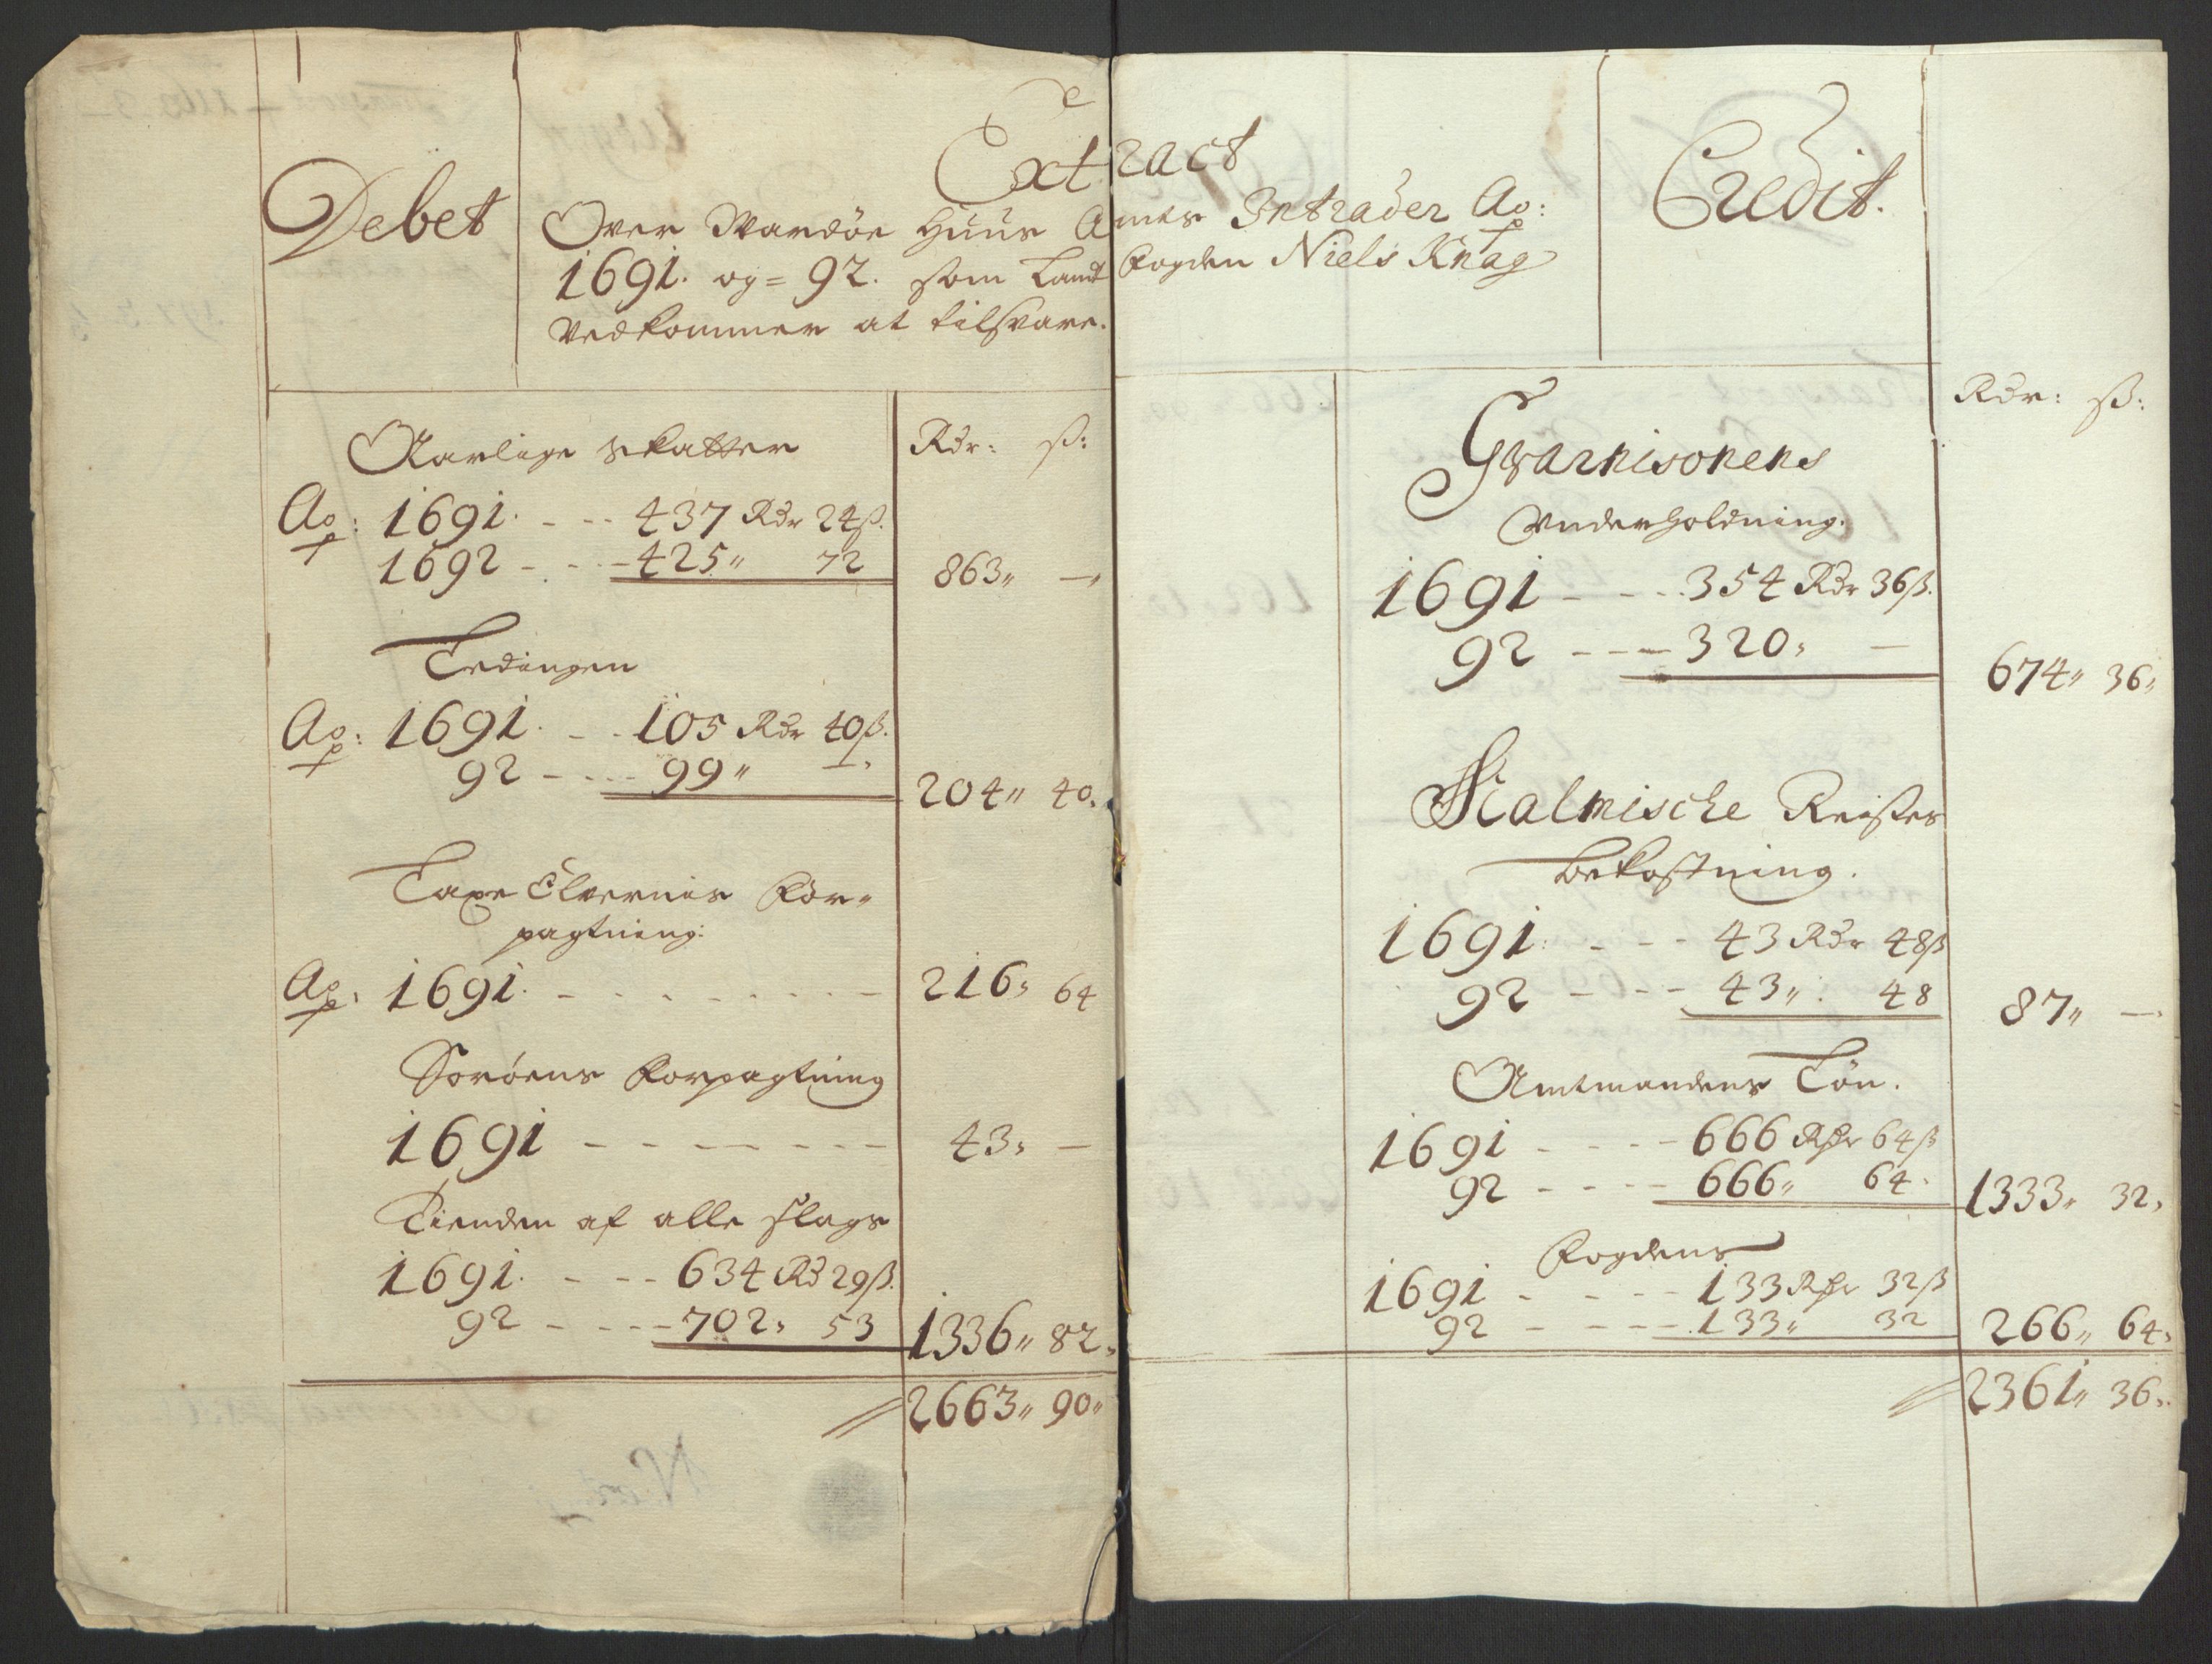 Extract
Debet
Over Wardöe Huus Amts Intrader Ao:
1691. og = 92. som Landt fogden Niels Knag
Vedkommer at tilsvare.
Credit.
Aarlige Skatter
Rdr: ß:
Ao: 1691. - - - 437 Rdr 24ß.
1692 - - - 425〃 72
863〃 —〃
Ledingen
Ao: 1691. - - 105 Rdr 40ß.
92 - - - - 99〃 —
204〃 40.
Laxe Elvernis For-
pagtning:
Ao: 1691. - - - - - - - - 216〃 64
Soröens Forpagtning
1691 - - - - - - - 43〃 —
Tienden af alle slags
1691. - - - 634 Rd 29ß.
92 - - - - 702〃 53
1336〃 82〃
2663〃 90〃
Rdr: ß:
Gvarnisonens
Vnderholdning.
1691 - - - 354 Rdr 36ß.
92 - - - 320〃 —
674〃 36〃
Malmische Reißes
bekostning.
1691. - - - 43 Rdr 48ß
92 - - - 43〃 48
87〃 —
Amtmandens Lön.
1691 - - - - 666 Rdr 64ß
92 - - - - 666〃 64
1333〃 32〃
Fogdens
1691 - - - - 133 Rdr 32ß
92 - - - - 133〃 32
266〃 64〃
2361〃 36〃